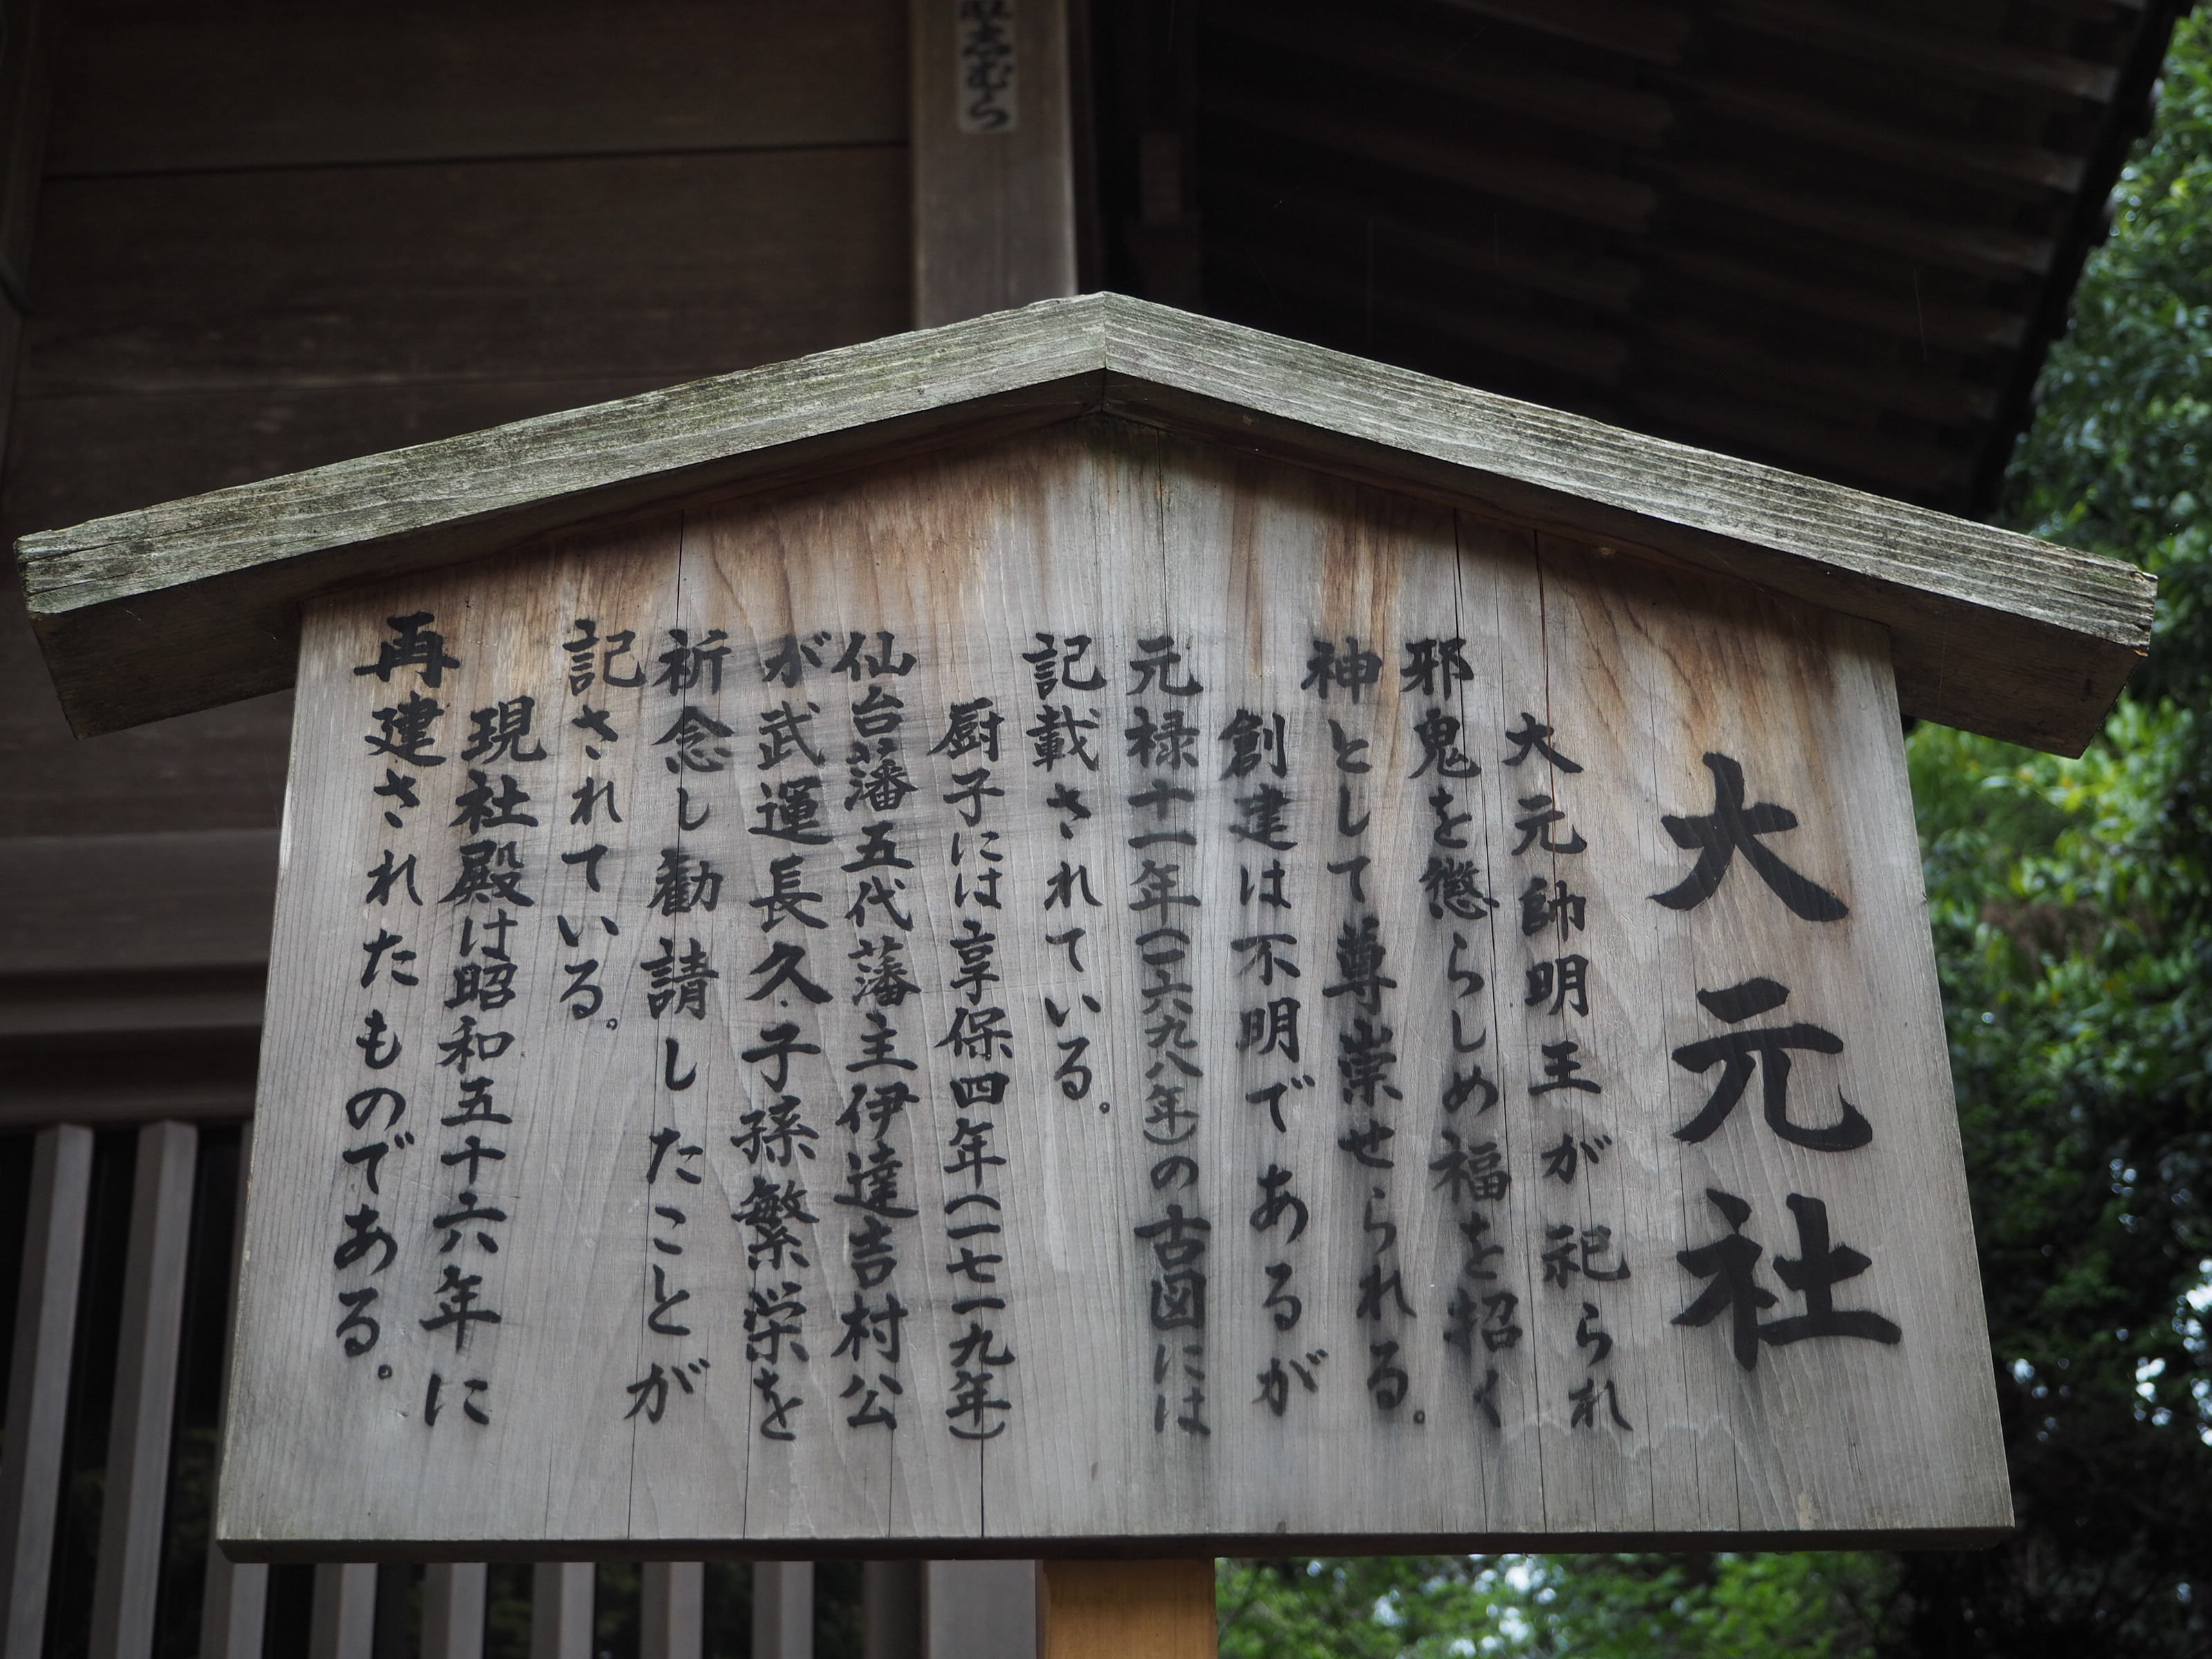 大元社
大元帥明王が祀られ
邪鬼を懲らしめ福を招く
神として尊崇せられる。
創建は不明であるが
元禄十一年(一六九八年)の古図には
記載されている。
厨子には享保四年(一七一九年)
仙台藩五代藩主伊達吉村公
が武運長久子孫繁栄を
祈念し勧請したことが
記されている。
現社殿は昭和五十六年に
再建されたものである。
志むら